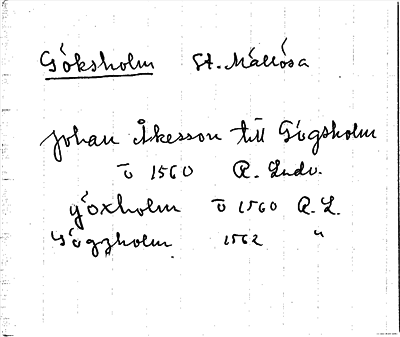 Göksholm St. Mällösa
Johan Åkesson till Gögsholm
ō 1560 R. Ludv.
Göxholm ō 1560 R. L.
Gögzholm 1562 "